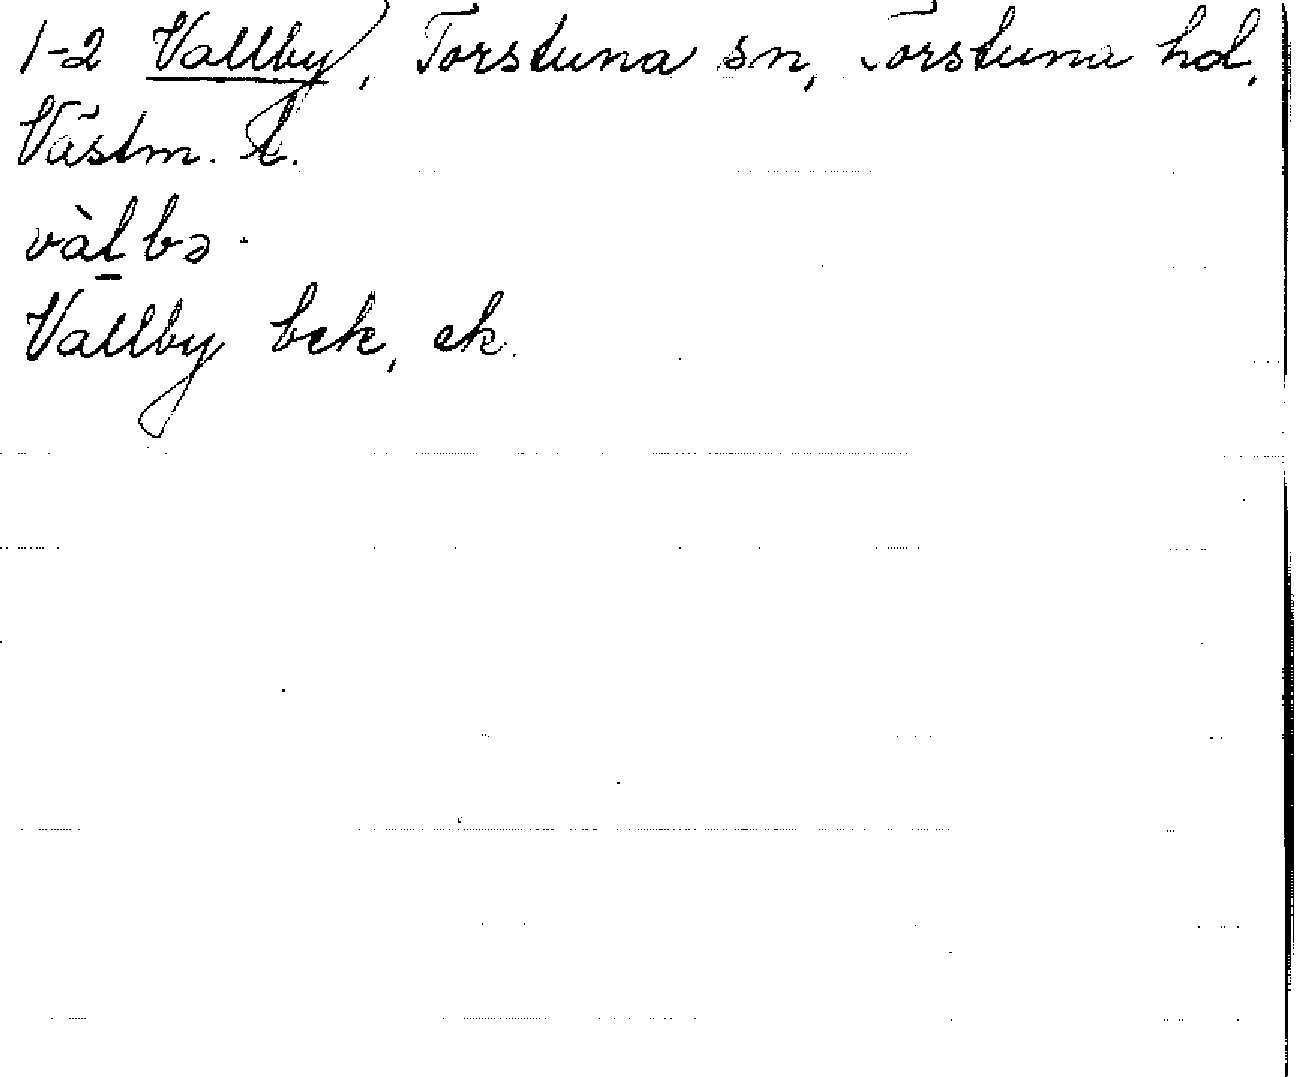 1-2 Vallby, Torstuna sn, Torstuna hd,
Västm. l.
vàl̠bə.
Vallby bek, ek.